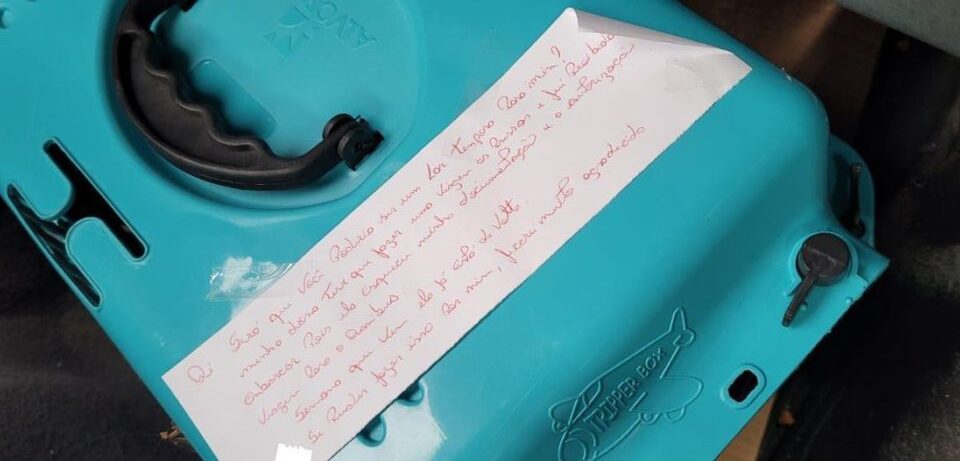 Oi será que você poderia ser um lar temporo para mim?
minha dona teve que fazer uma viagem as pressas e foi Proibida
embarcar Pois ela esqueceu minha documentação e a autorização
viagem para o ônibus
Semana que vem ela já está de Volta.
Se Puder fazer isso por mim, ficarei muito agradecido
TRIPPER BOX